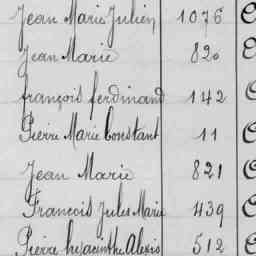 Jean Marie Julien 1076
Jean Marie 820
françois ferdinand 142
Pierre Marie Constant 11
Jean Marie 821
François Jules Marie 439
Pierre hyacinthe Alexis 512